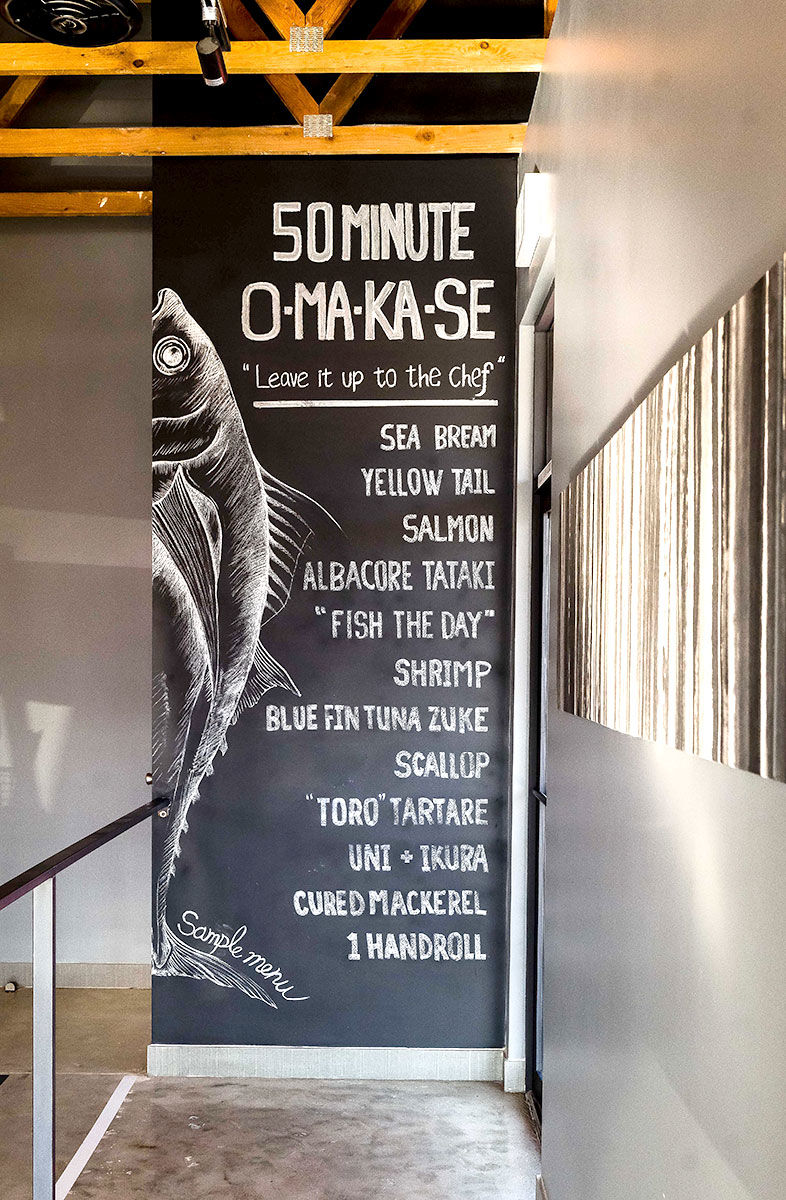 50 MINUTE
O-MA-KA-SE
"Leave it up to the chef"
SEA BREAM
YELLOW TAIL
SALMON
ALBACORE TATAKI
"FISH THE DAY"
SHRIMP
BLUE FIN TUNA ZUKE
SCALLOP
"TORO" TARTARE
UNI + IKURA
CURED MACKEREL
1 HANDROLL
Sample menu